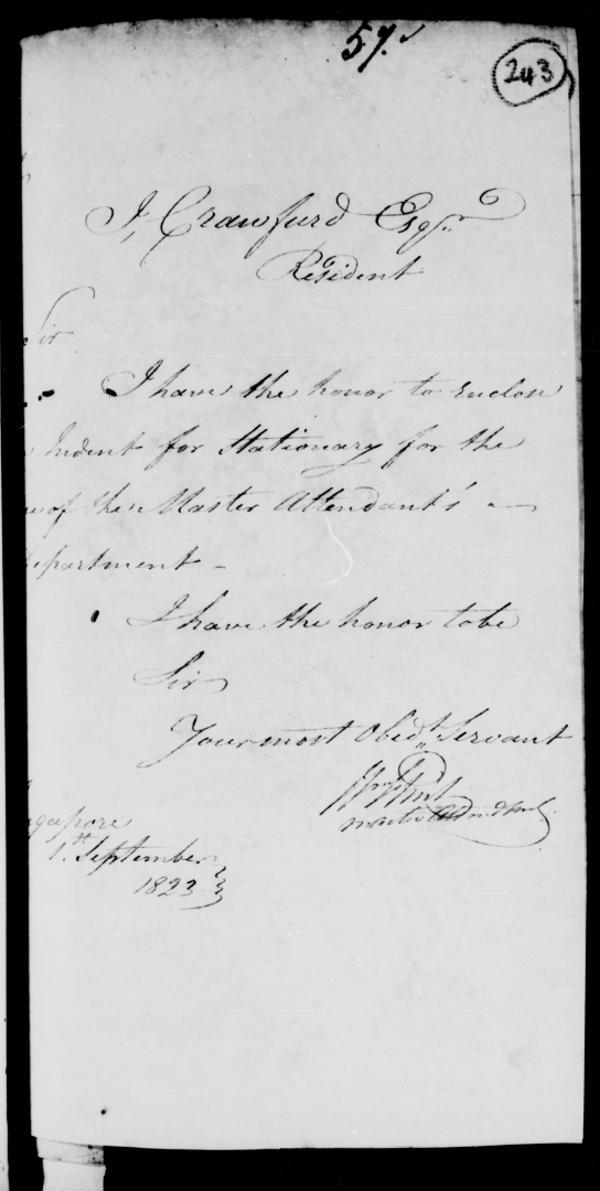 57.
243
J, Crawfurd Esqr.
Resident
Sir
I have the honor to Enclose
Indent for Stationary for the
of the Master Attendant's
Department
I have the honor to be
Sir
Your most Obedt. Servant
Flint
Master Attendant
gapore
1.st September
1823